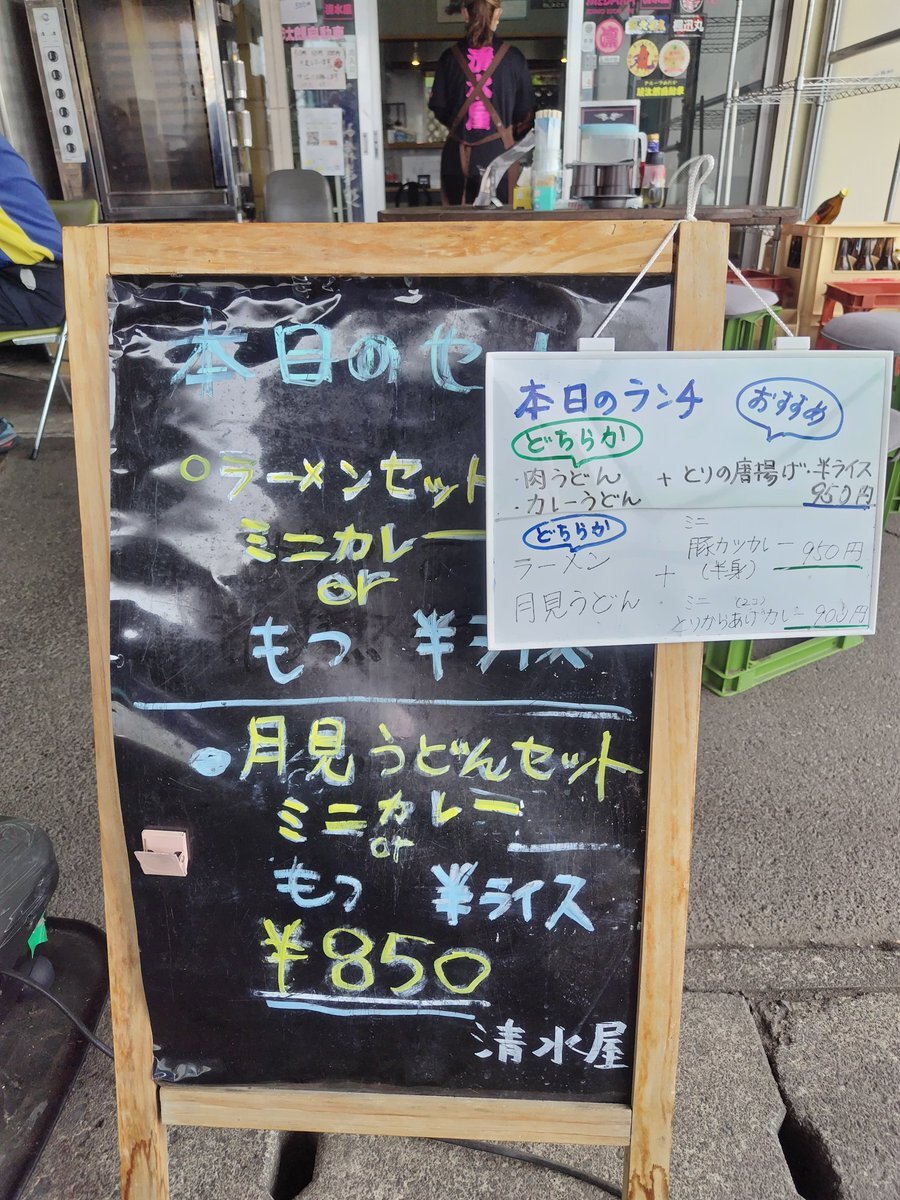 本日のセ
○ラーメンセット
ミニカレー
or
もつ 半ライス
月見うどんセット
ミニカレー
or
もつ 半ライス
¥850
清水屋
本日のランチ おすすめ
どちらか
・肉うどん + とりの唐揚げ・半ライス
・カレーうどん 950円
どちらか
ラーメン + ミニ 豚カツカレー 950円
(半身)
月見うどん ミニ (2コ) とりからあげカレー 900円